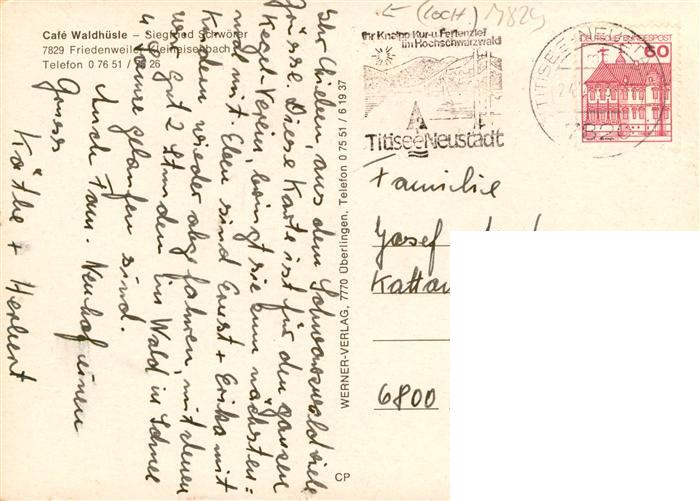 Café Waldhüsle – Siegfried Schwörer
7829 Friedenweiler-Kleineisenbach
Telefon 0 76 51 / 26
Ihr Lieben, aus dem Schwarzwald viele
Grüsse. Diese Karte ist für den ganzen
Kegel-Verein, bringt sie zum nächsten-
mal mit. Eben sind Ernst + Erika mit
Kindern wieder abgefahren, mit denen
wir gut 2 Stunden im Wald in Schnee
u. Sonne gelaufen sind.
Auch Fam. Neuhof einen
Gruss
Käthe + Herbert
WERNER-VERLAG, 7770 Überlingen, Telefon 0 75 51 / 6 19 37
CP
(LOCH) 7829
Ihr Kneipp Kur-u. Ferienziel
im Hochschwarzwald
Titisee Neustadt
TITISEE-NEUST
7820
DEUTSCHE BUNDESPOST
60
Familie
Josef
6800